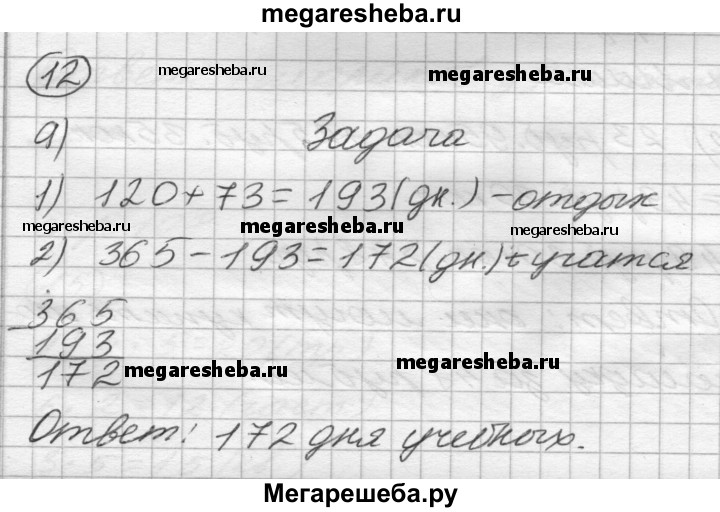 megaresheba.ru
12 megaresheba.ru megaresheba.ru
а) Задача
1) 120+73=193(дн.)-отдых
megaresheba.ru megaresheba.ru
2) 365-193=172(дн.)-учатся
365
- 193
172 megaresheba.ru megaresheba.ru
Ответ: 172 дня учебных.
Мегарешеба.ру